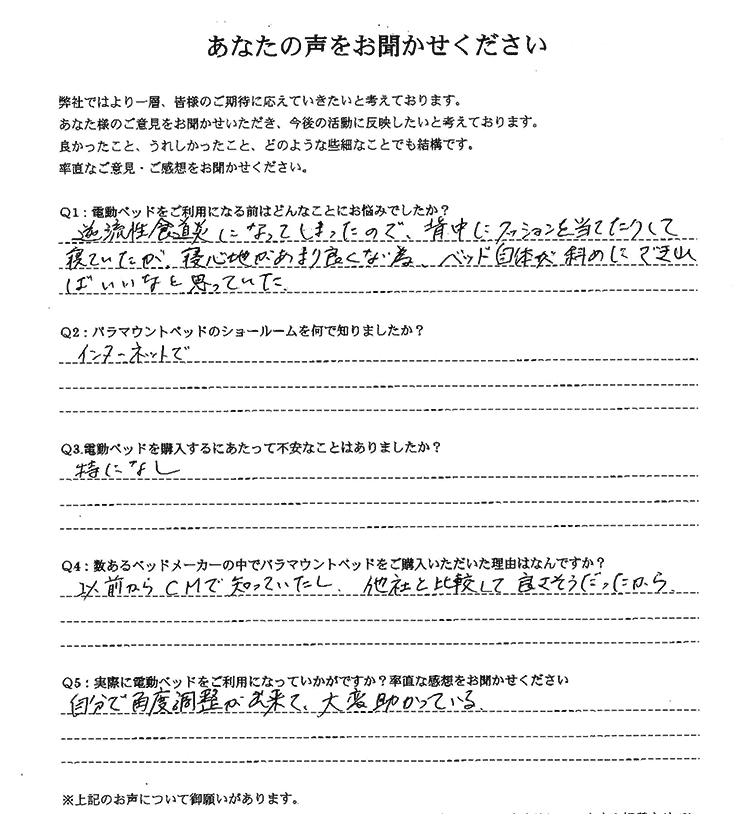 あなたの声をお聞かせください
弊社ではより一層、皆様のご期待に応えていきたいと考えております。
あなた様のご意見をお聞かせいただき、今後の活動に反映したいと考えております。
良かったこと、うれしかったこと、どのような些細なことでも結構です。
率直なご意見・ご感想をお聞かせください。
Q1：電動ベッドをご利用になる前はどんなことにお悩みでしたか？
逆流性食道炎になってしまったので、背中にクッションを当てたりして
寝ていたが、寝心地があまり良くない為、ベッド自体が斜めにできれ
ばいいなと思っていた。
Q2：パラマウントベッドのショールームを何で知りましたか？
インターネットで
Q3.電動ベッドを購入するにあたって不安なことはありましたか？
特になし
Q4：数あるベッドメーカーの中でパラマウントベッドをご購入いただいた理由はなんですか？
以前からCMで知っていたし、他社と比較して良さそうだったから。
Q5：実際に電動ベッドをご利用になっていかがですか？率直な感想をお聞かせください
自分で角度調整が出来て、大変助かっている。
※上記のお声について御願いがあります。